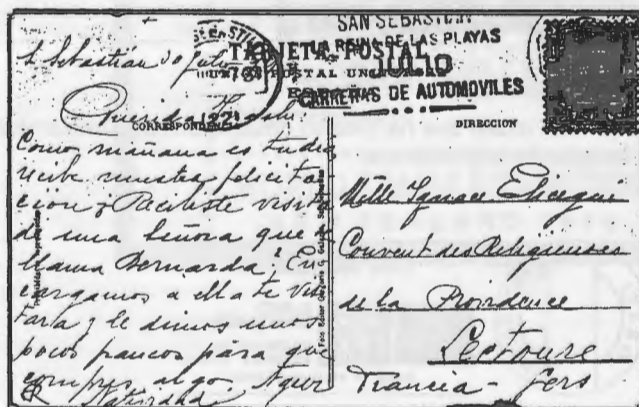 SAN SEBASTIAN
REINA DE LAS PLAYAS
TARJETA POSTAL
JULIO
CARRERAS DE AUTOMOVILES
S. Sebastián 30 Julio
Querida
CORRESPONDENCIA
DIRECCION
Como mañana es tu dia
recibe nuestra felicita
cion ¿Recibiste visita
de una Señora que se
llama Bernarda? En
cargamos a ella te visi
tara y le dimos unos
pocos francos para que
compres algo. Agur
Natividad
Mlle Ignace Elicegui
Couvent des Religieuses
de la Providence
Lectoure
Francia - Gers